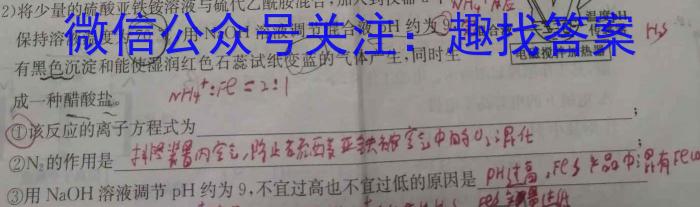 2)将少量的硫酸亚铁铵溶液与硫代乙酰胺混合,加入到仪器
保持溶液 用 NaOH 溶液调节 混合液 pH 约为 9
微信公众号关注:趣找答案
H₂S
电磁搅拌加热器
有黑色沉淀和能使湿润红色石蕊试纸变蓝的气体产生,同时生
成一种醋酸盐。
NH₄⁺:Fe = 2:1
①该反应的离子方程式为 ;
②N₂的作用是 排除装置内空气,防止 硫酸亚铁铵被空气中的O₂氧化 ;
③用 NaOH 溶液调节 pH 约为 9,不宜过高也不宜过低的原因是 pH过高,FeS产品中混有Fe(O